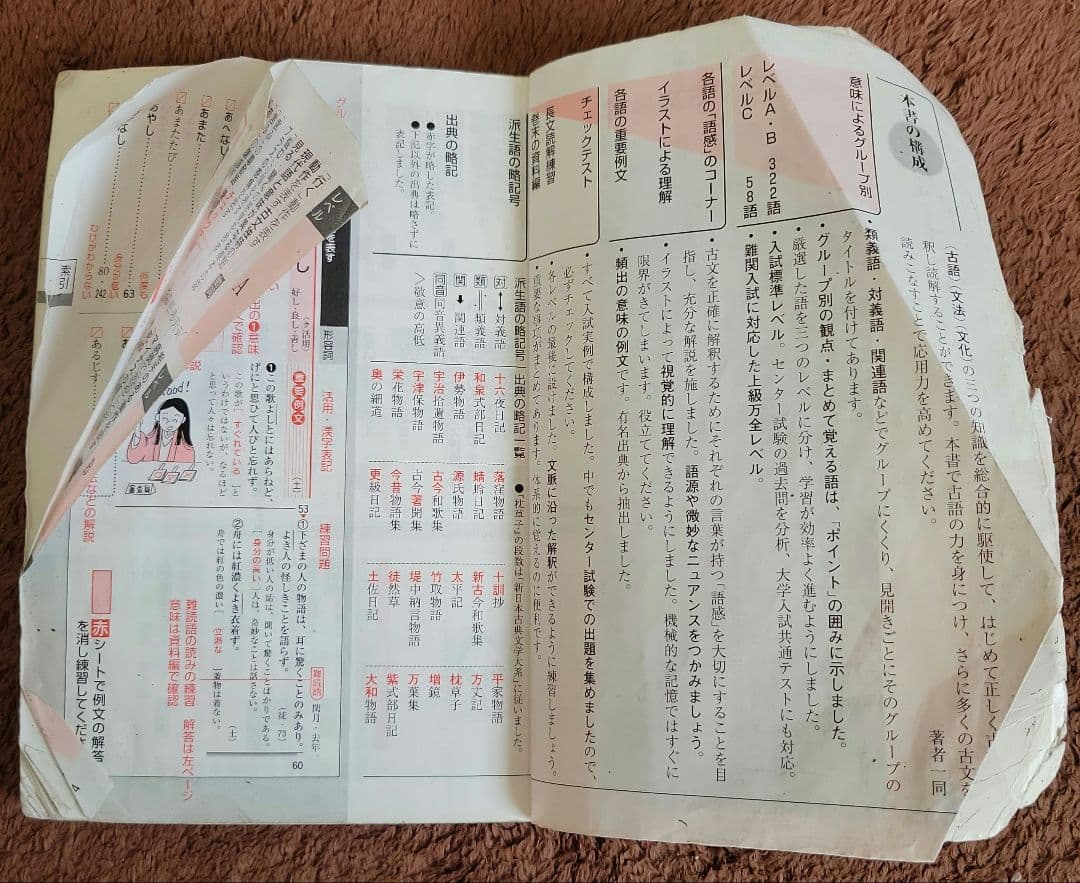 (古語)(文法)(文化)の三つの知識を総合的に駆使して、はじめて正しく古
釈し読解することができます。本書で古語の力を身につけ、さらに多くの古文を
読みこなすことで応用力を高めてください。
著者一同
本書の構成
意味によるグループ別
・類義語・対義語・関連語などでグループにくくり、見開きごとにそのグループの
タイトルを付けてあります。
・グループ別の観点・まとめて覚える語は、「ポイント」の囲みに示しました。
レベルA・B 322語
レベルC 58語
・厳選した語を三つのレベルに分け、学習が効率よく進むようにしました。
・入試標準レベル。センター試験の過去問を分析、大学入試共通テストにも対応。
・難関入試に対応した上級万全レベル。
各語の「語感」のコーナー
イラストによる理解
各語の重要例文
・古文を正確に解釈するためにそれぞれの言葉が持つ「語感」を大切にすることを目
指し、充分な解説を施しました。語源や微妙なニュアンスをつかみましょう。
・イラストによって視覚的に理解できるようにしました。機械的な記憶ではすぐに
限界がきてしまいます。役立ててください。
・頻出の意味の例文です。有名出典から抽出しました。
チェックテスト
長文読解練習
巻末の資料編
・すべて入試実例で構成しました。中でもセンター試験での出題を集めましたので、
必ずチェックしてください。
・各レベルの最後に設けました。文脈に沿った解釈ができるように練習しましょう。
・重要な事項がまとめてあります。体系的に覚えるのに便利です。
派生語の略記号
出典の略記
●赤字が略した表記。
●下記以外の出典は略さずに
表記しました。
派生語の略記号
対↔対義語
類＝類義語
関➡関連語
同音 同音異義語
＞敬意の高低
出典の略記一覧
●『枕草子』の段数は『新日本古典文学大系』に従いました。
十六夜日記
和泉式部日記
伊勢物語
宇治拾遺物語
宇津保物語
栄花物語
奥の細道
落窪物語
蜻蛉日記
源氏物語
古今和歌集
古今著聞集
今昔物語集
更級日記
十訓抄
新古今和歌集
太平記
竹取物語
堤中納言物語
徒然草
土佐日記
平家物語
方丈記
枕草子
増鏡
万葉集
紫式部日記
大和物語
形容詞
活用・漢字表記
練習問題
を表す
し
〔ク活用〕
好し・良し・善し
重要例文
❶この歌よしとにはあらねど、
げにと思ひて人びと忘れず。
この歌が〔すぐれている〕と
いうわけではないが、なるほど
と思って人々は忘れない。
(土)
53
①下ざまの人の物語は、耳に驚くことのみあり。
よき人の怪しきことを語らず。
(徒・73)
身分が低い人の話は、聞いて驚くことばかりである。
〔身分の高い〕人は、奇妙なことは話さない。
②舟には紅濃くよき衣着ず。
(土)
舟では紅の色の濃い〔立派な〕着物は着ない。
難読語
閏月・去年
60
難読語の読みの練習 解答は左ページ
意味は資料編で確認
赤シートで例文の解答
を消し練習してくださ
の解説
レベル
A
動作を表す
あへなし
あまた
あまたたび
あやし
なし
何度も
63
身分が低い
80
242
わけがわからない
あるじす
索引
4